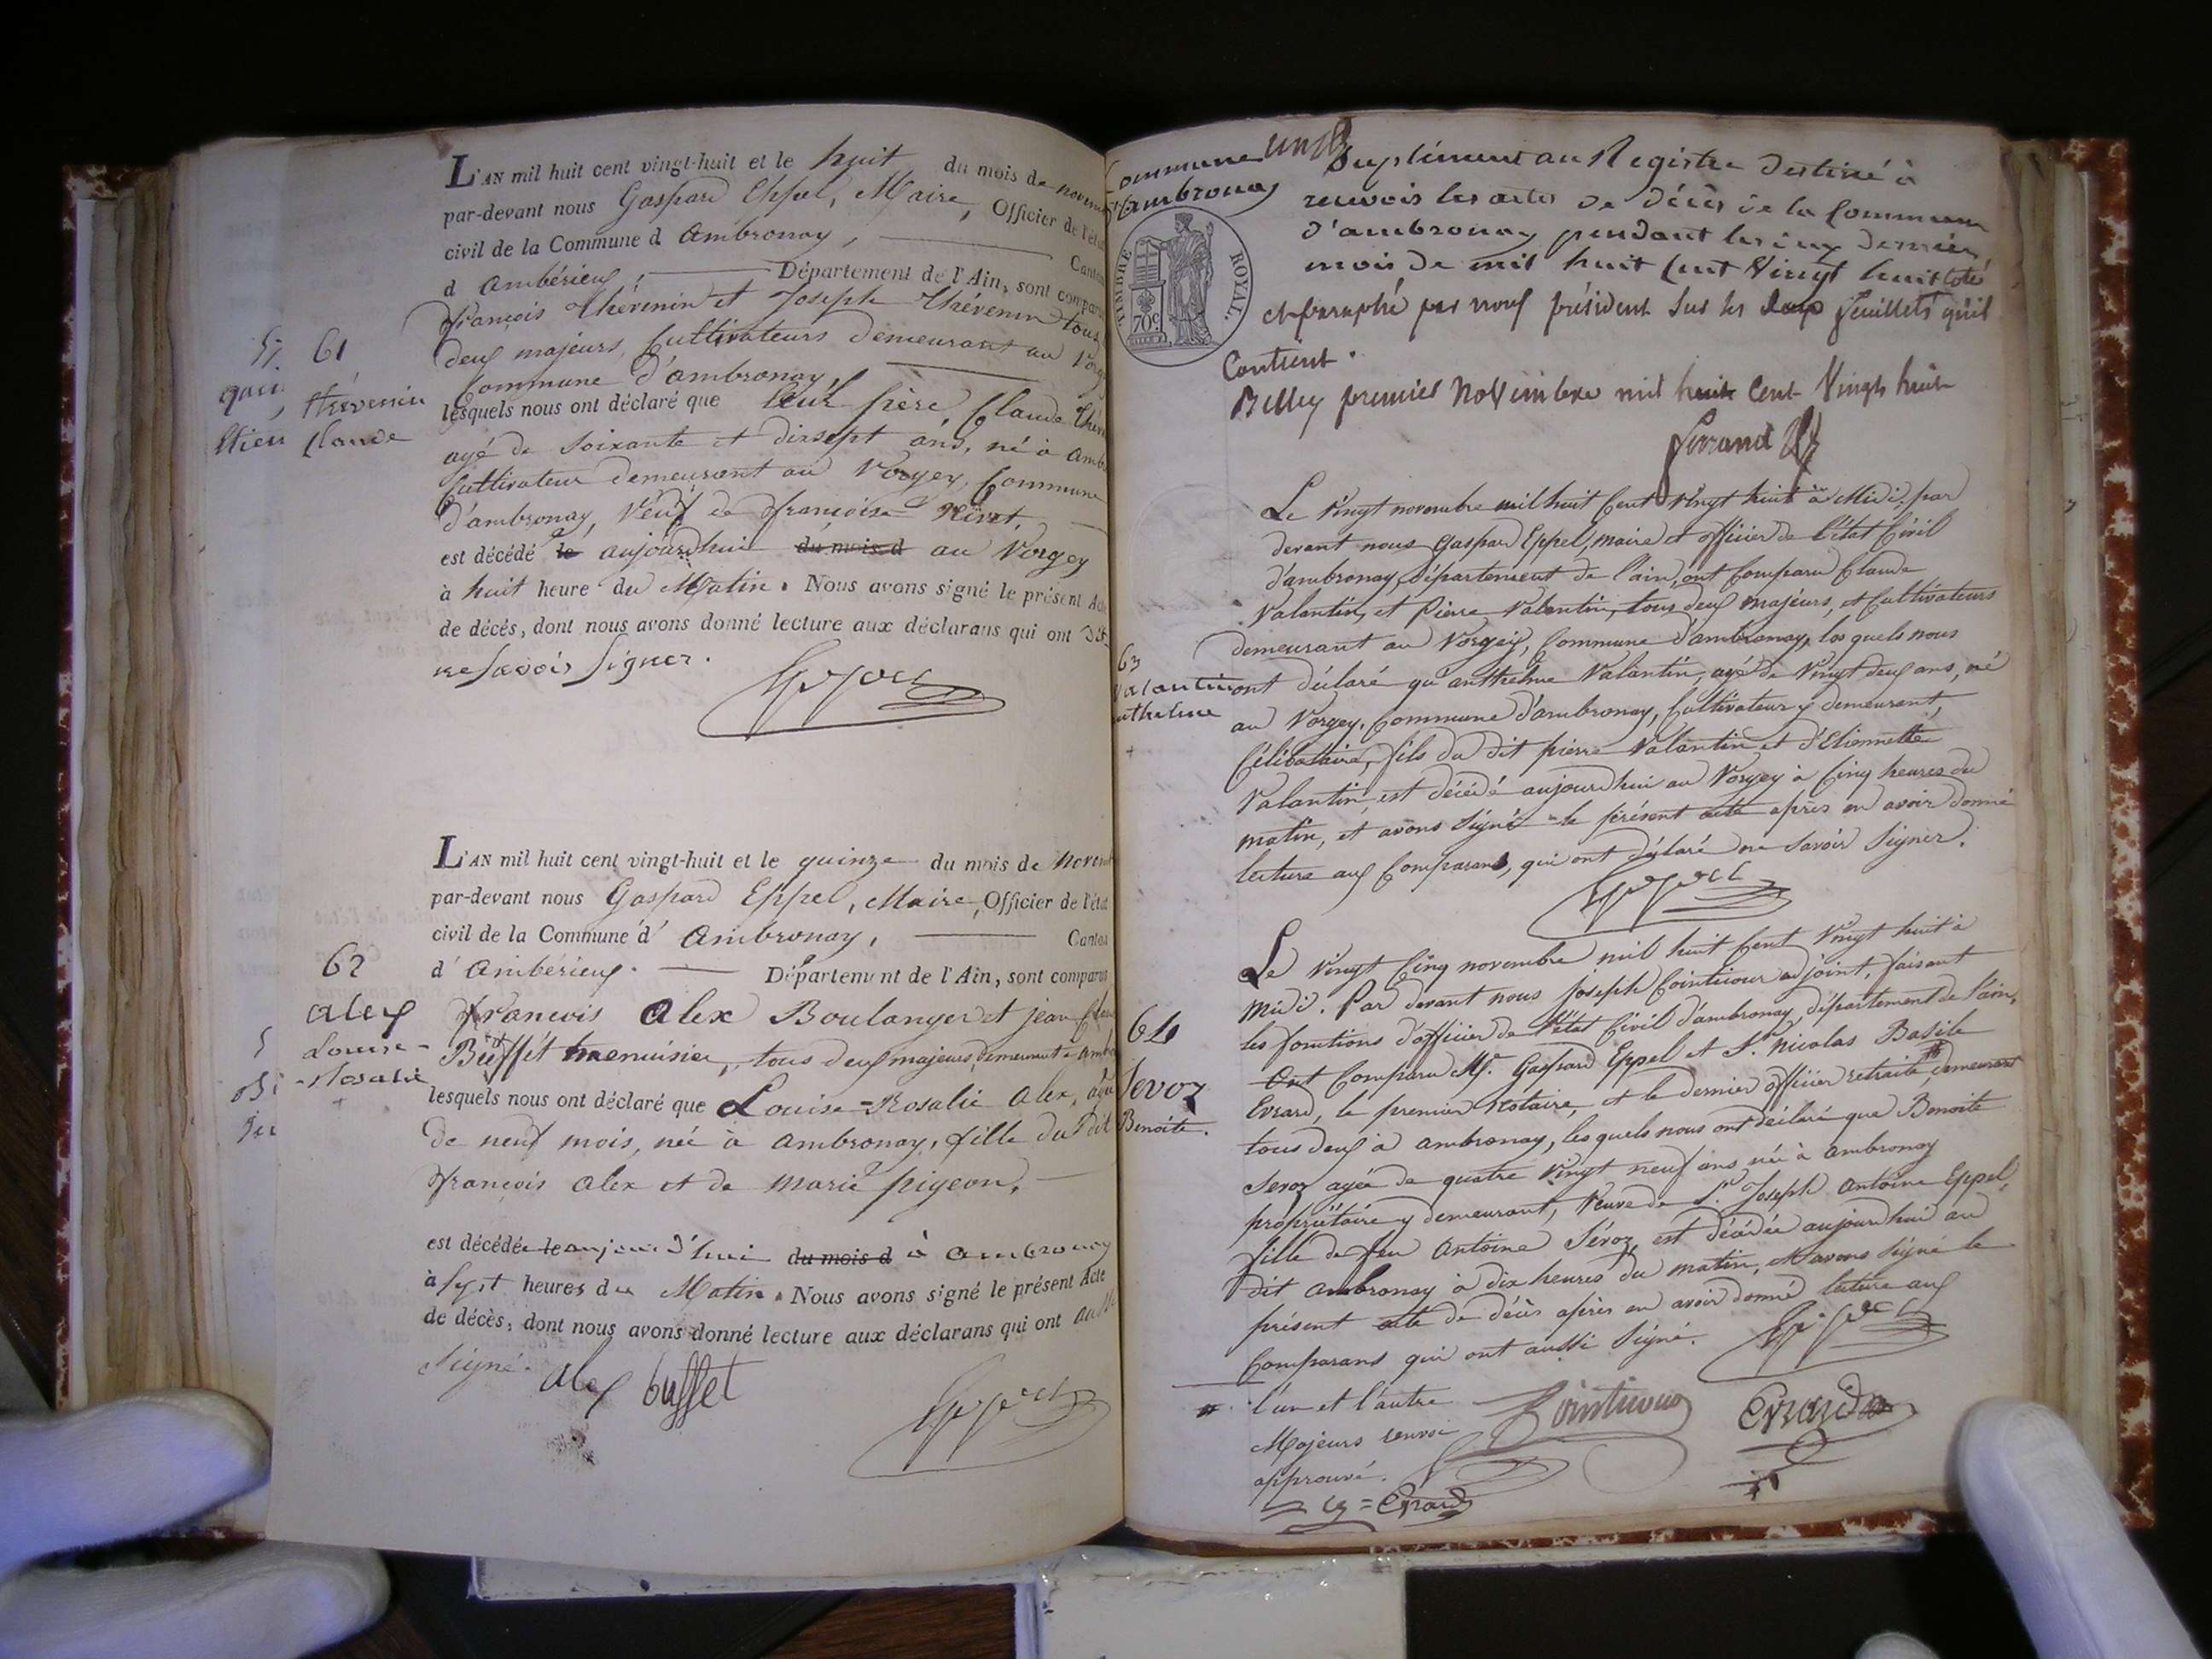 L'AN mil huit cent vingt-huit et le huit du mois de novem
par-devant nous Gaspard Eppel, Maire, Officier de l'état
civil de la Commune d Ambronay, Canton
d Ambérieux, Département de l'Ain, sont comparus
françois Thévenin et Joseph Thévenin tous
deux majeurs, Cultivateurs demeurant au Vorgey
Commune d'ambronay,
61
Thévenin
Claude
lesquels nous ont déclaré que leur frère Claude Théve
agé de soixante et dixsept ans, né à Amb
Cultivateur demeurant au Vorgey, Commune
d'ambronay, Veuf de françoise
est décédé le aujourdhui du mois d au Vorgey
à huit heure du Matin. Nous avons signé le présent Acte
de décés, dont nous avons donné lecture aux déclarans qui ont dit
ne savoir signer.
L'AN mil huit cent vingt-huit et le quinze du mois de Novem
par-devant nous Gaspard Eppel, Maire, Officier de l'état
civil de la Commune d' Ambronay, Canton
d' Ambérieux. Département de l'Ain, sont comparus
62
Alex
Louise-
Rosalie
françois Alex Boulanger et jean
Buffet menuisier, tous deux majeurs, demeurant à Amb
lesquels nous ont déclaré que Louise-Rosalie Alex, agée
de neuf mois, née à ambronay, fille du dit
françois Alex et de marie pigeon,
est décédée le aujourd'hui du mois d à Ambronay
à sept heures du Matin. Nous avons signé le présent Acte
de décès, dont nous avons donné lecture aux déclarans qui ont aussi
signé.
alex buffet
Commune
d'Ambronay
TIMBRE ROYAL.
70c
Suplément au Registre destiné à
recevoir les actes de décès de la Commune
d'ambronay pendant les deux derniers
mois de mil huit cent Vingt huit coté
et paraphé par nous président sur les deux feuillets qu'il
contient.
Belley premier Novembre mil huit Cent Vingt huit
63
Valantin
anthelme
Le Vingt novembre mil huit Cent Vingt huit à Midi, par
devant nous Gaspard Eppel, maire et officier de l'état Civil
d'ambronay, département de l'ain, ont Comparu Claude
Valantin, et Pierre Valantin, tous deux majeurs, et Cultivateurs
demeurant au Vorgey, Commune d'ambronay, les quels nous
ont déclaré qu'anthelme Valantin, agé de Vingt deux ans, né
au Vorgey, Commune d'ambronay, Cultivateur y demeurant,
Célibataire, fils du dit pierre Valantin et d'Etiennette
Valantin, est décédé aujourdhui au Vorgey à Cinq heures du
matin, et avons Signé le présent acte après en avoir donné
lecture aux Comparans, qui ont déclaré ne Savoir Signer.
64
Sevoz
Benoite.
Le Vingt Cinq novembre mil huit Cent Vingt huit à
midi. Par devant nous joseph Cointicour adjoint, faisant
les fonctions d'officier de l'état Civil d'ambronay, département de l'ain,
Ont Comparu Mr. Gaspard Eppel et Sr. Nicolas Basile
Evrard, le premier Notaire, et le dernier officier retraité # demeurant
tous deux à ambronay, les quels nous ont déclaré que Benoite
Sevoz agée de quatre Vingt neuf ans née à ambronay
propriétaire y demeurant, Veuve de Sr. Joseph Antoine Eppel,
fille de feu Antoine Sévoz, est décédée aujourdhui au
dit ambronay à dix heures du matin, et avons Signé le
présent acte de décès après en avoir donné lecture aux
Comparans qui ont aussi Signé.
# l'un et l'autre
Majeurs renvoi
approuvé.
Cointicour
Evrard
Evrard